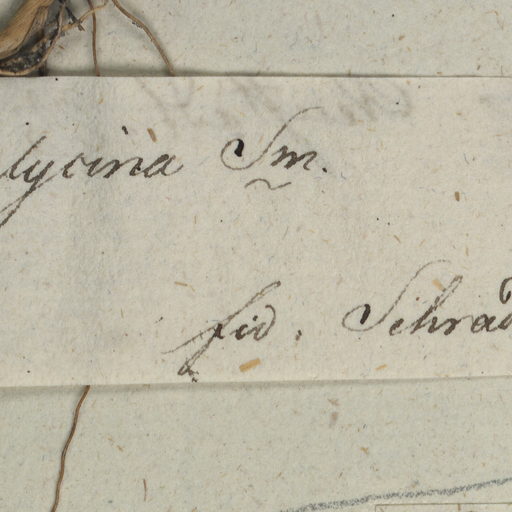 lycina Sm.
fid. Schrad